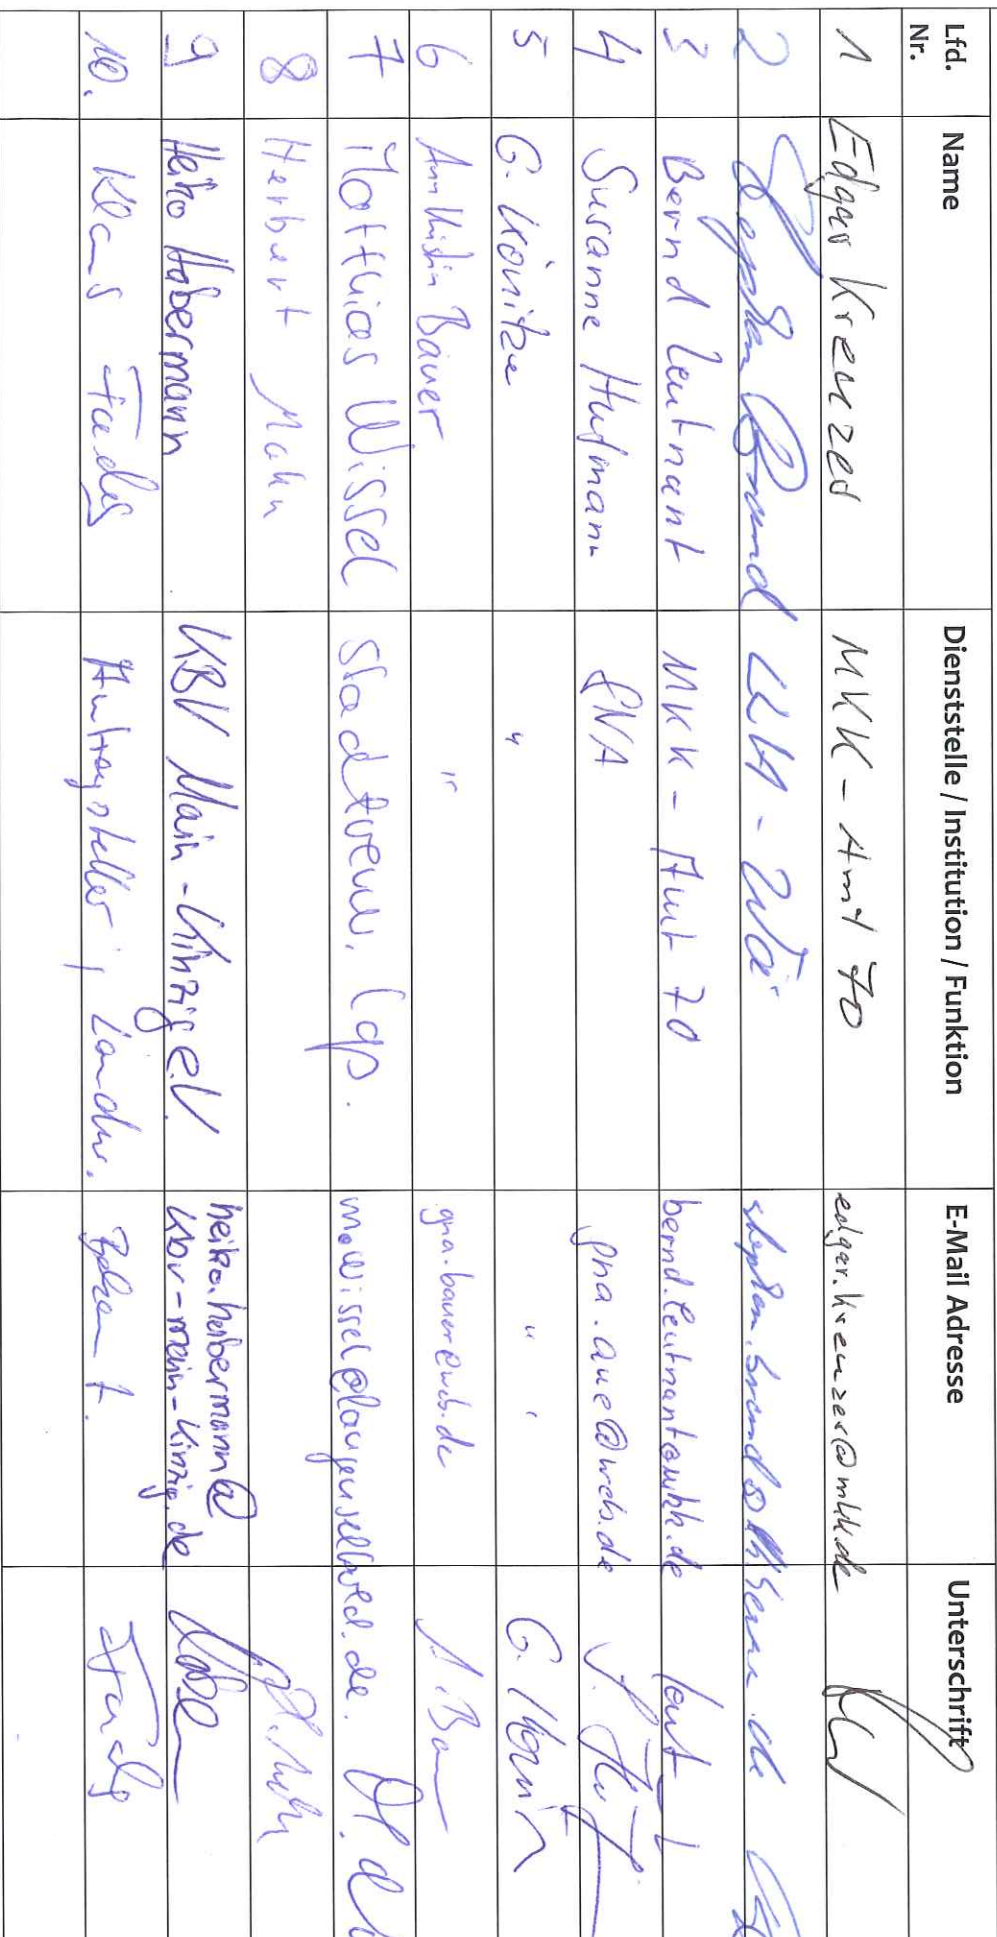 Lfd. Nr. Name Dienststelle / Institution / Funktion E-Mail Adresse Unterschrift
1 Edgar Kreuzer MKK - Amt 70 edgar.kreuzer@mkk.de
2 Stephan Brand
3 Bernd Leutnant MKK - Amt 70 bernd.leutnant@mkk.de Leut
4 Susanne Hufmann GNA gna.aue@web.de S. Huf
5 G. Könitzer " " " G. Könitz
6 Ann Kristin Bauer " gna.bauer@web.de A. Bau
7 Matthias Wissel Stadtverw. Lgs. m.wissel@langenselbold.de.
8 Herbert Mahn
9 Heiko Habermann KBV Main-Kinzig e.V. heiko.habermann@
kbv-main-kinzig.de
10. Klaus Antragsteller, Landw. bekannt.